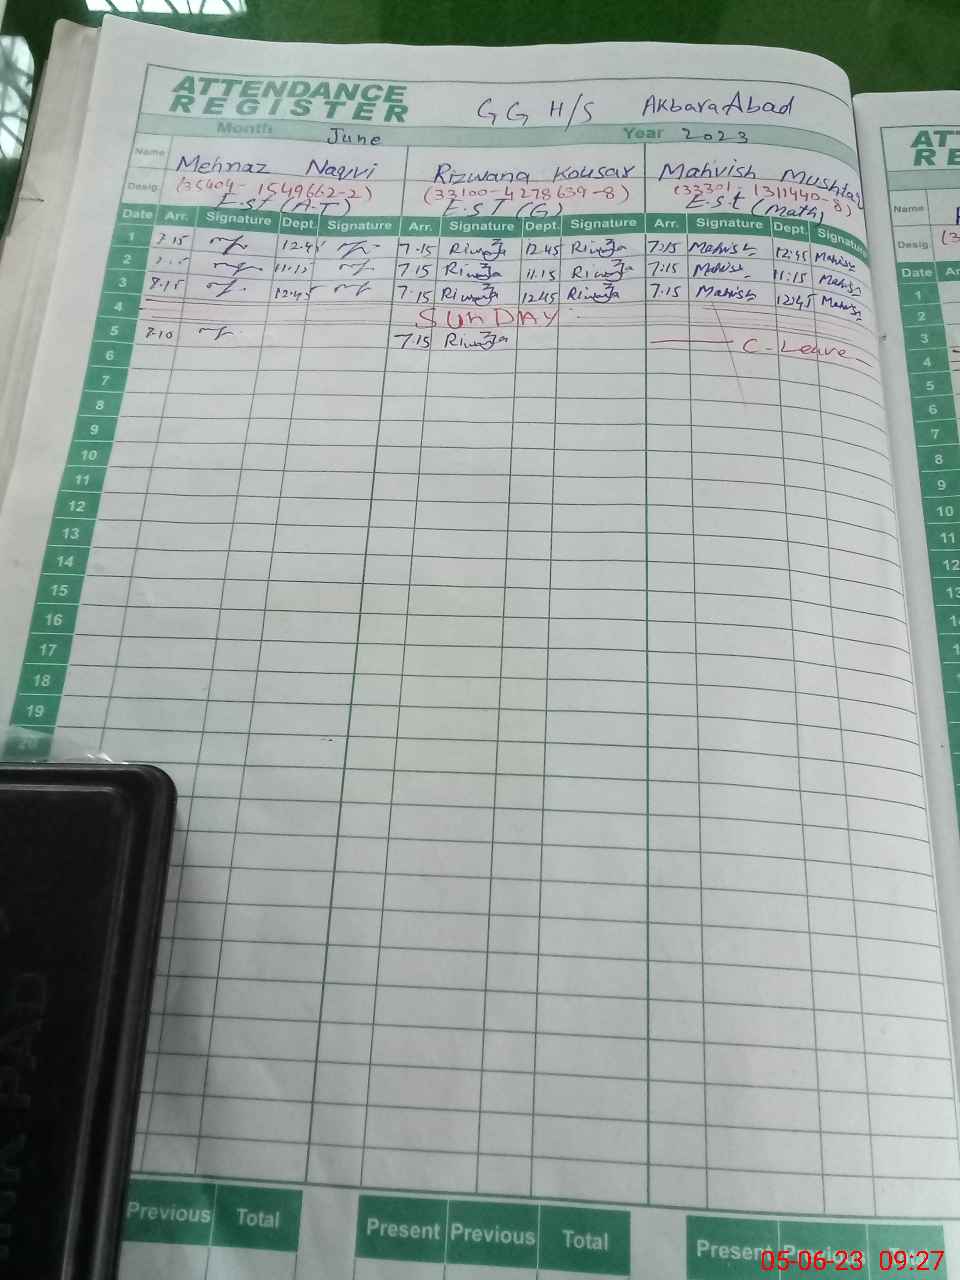 ATTENDANCE
REGISTER
GG H/S AkbaraAbad
Month June Year 2023
Name Mehnaz Naqvi Rizwana Kousar Mahvish Mushtaq
Desig. (35404-1549662-2) (33100-4278639-8) (33301-1311440-8)
E.ST (A.T) E.ST (G) E.s.t (Math)
Date Arr. Signature Dept. Signature Arr. Signature Dept. Signature Arr. Signature Dept. Signature
1 7.15 12.45 7.15 12.45 7:15 Mahvish 12:45 Mahvish
2 11.15 7.15 11.15 7:15 Mahvish 11:15 Mahvish
3 12.45 7.15 12.45 7.15 Mahvish 12:45 Mahvish
4 SUNDAY
5 7.10 7.15 C-Leave
6
7
8
9
10
11
12
13
14
15
16
17
18
19
20
Previous Total Present Previous Total Present Previous
INK PAD
Name
Desig.
Date
1
2
3
4
5
6
7
8
9
10
11
12
05-06-23 09:27